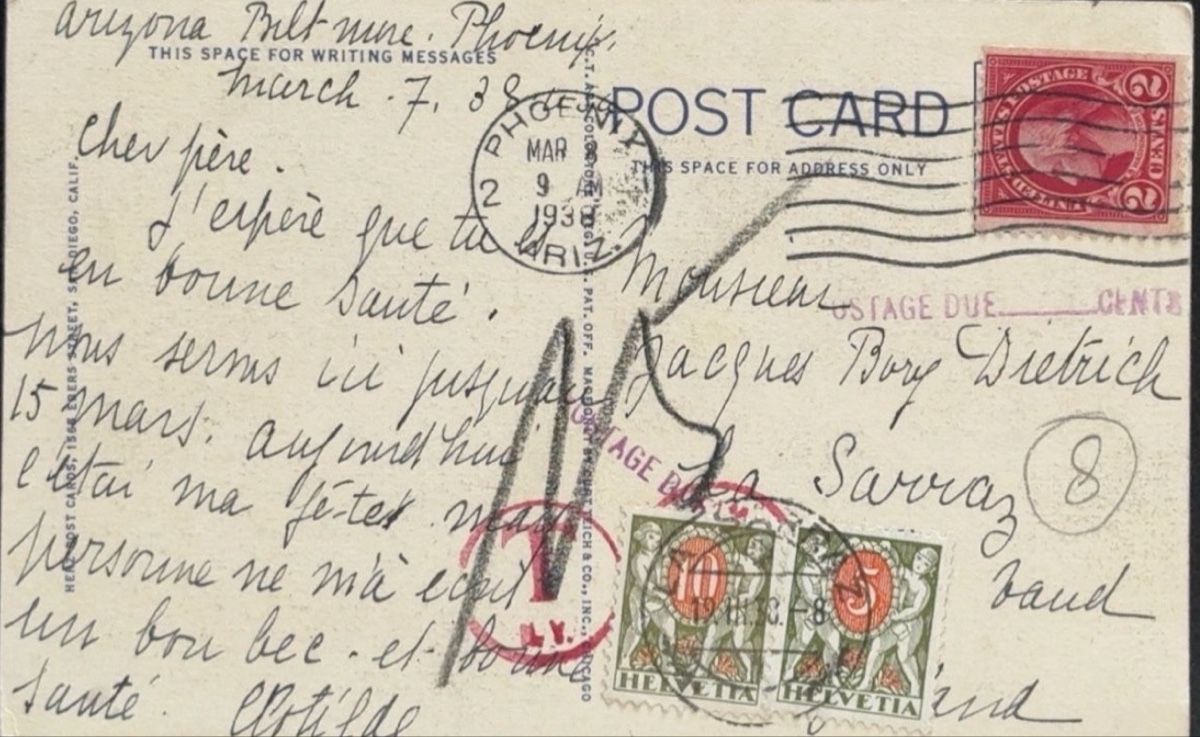 Arizona Biltmore. Phoenix.
THIS SPACE FOR WRITING MESSAGES
March. 7. 38
Cher père.
J'espère que tu es
en bonne Santé.
nous serons ici jusqu'au
15 mars. aujourd'hui
c'etai ma fête mais
personne ne m'a ecrit
un bon bec. et bonne
Santé.
Clotilde
HEADPOST CARDS, 1568 EBERS STREET, SAN DIEGO, CALIF.
REG. U.S. PAT. OFF. MADE ONLY BY CURT TEICH & CO., INC., CHICAGO
POST CARD
THIS SPACE FOR ADDRESS ONLY
PHOENIX
MAR
9 AM
193
ARIZ.
2
UNITED STATES POSTAGE
2 CENTS 2
OSTAGE DUE CENTS
Monsieur
Jacques Bory Dietrich
La Sarraz
Vaud
8
15
T
L.Y.
10
HELVETIA
5
HELVETIA
LA SARRAZ
19.III.38.-8